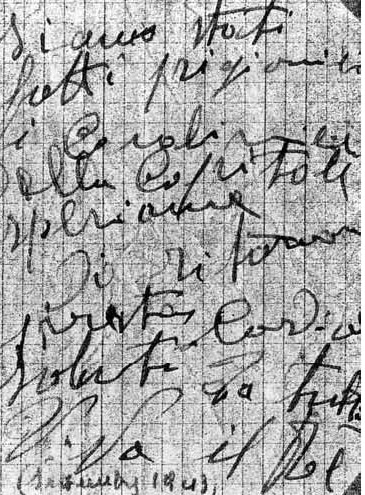 siamo stati
fatti prigionieri
i Carabinieri
della Capitale
speriamo
di ritorno
presto Cordiali
saluti a tutti
Viva il Re
(January 1941)